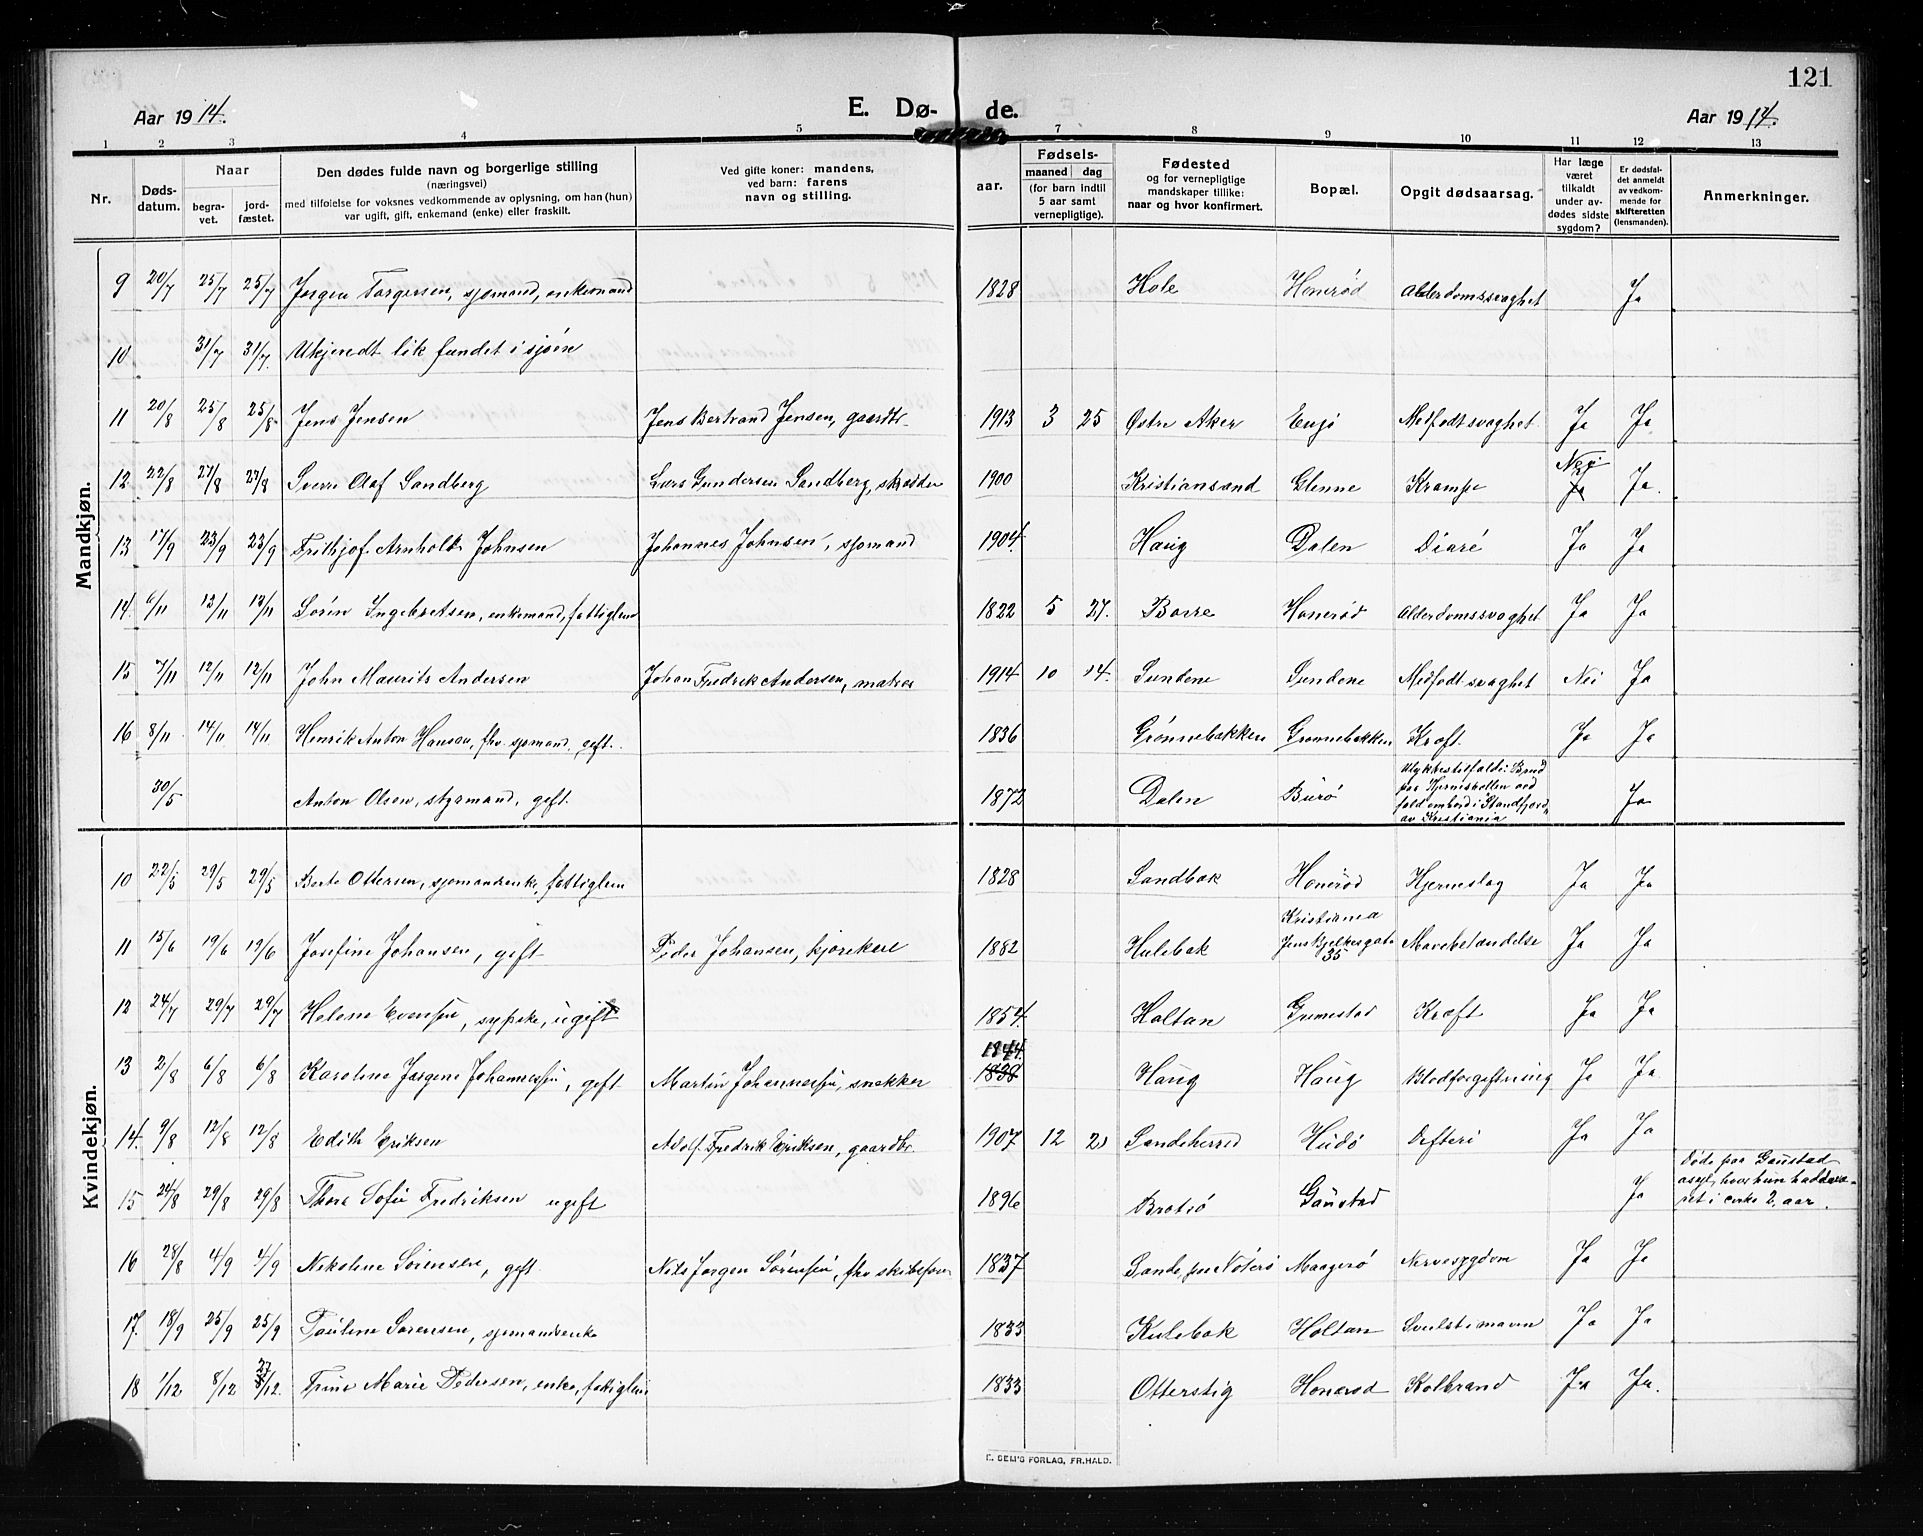 121
Aar 1914. E. Dø- de. Aar 1914.
1 2 3 4 5 7 8 9 10 11 12 13
Nr.
Døds-
datum.
Naar
begra-
vet.
jord-
fæstet.
Den dødes fulde navn og borgerlige stilling
(næringsvei)
med tilføielse for voksnes vedkommende av oplysning, om han (hun)
var ugift, gift, enkemand (enke) eller fraskilt.
Ved gifte koner: mandens,
ved barn: farens
navn og stilling.
aar.
Fødsels-
maaned dag
(for barn indtil
5 aar samt
vernepligtige).
Fødested
og for vernepligtige
mandskaper tillike:
naar og hvor konfirmert.
Bopæl.
Opgit dødsaarsag.
Har læge
været
tilkaldt
under av-
dødes sidste
sygdom?
Er dødsfal-
det anmeldt
av vedkom-
mende for
skifteretten
(lensmanden).
Anmerkninger.
Mandkjøn.
9 20/7 25/7 25/7 Jørgen Torgersen, sjømand, enkemand 1828 Hole Honerød Alderdomssvaghet Ja
10 31/7 31/7. Ukjendt lik fundet i sjøen
11 20/8 25/8 25/8 Jens Jensen Jens Bertrand Jensen, gaardbr. 1913 3 25 Østre Aker Engø Medfødt svaghet Ja Ja
12 22/8 27/8 27/8 Sverre Olaf Sandberg Lars Gundersen Sandberg, skrædder 1900 Kristiansand Glenne Krampe Nei Ja Ja.
13 17/9 23/9 23/9 Frithjof Arnholdt Johnsen Johannes Johnsen, sjømand 1904. Haug Dalen Diaré Ja Ja
14. 6/11 12/11 12/11 Søren Ingebretsen, enkemand, fattiglem 1822 5 27. Borre Honerød Alderdomssvaghet Ja Ja
15 7/11 12/11 12/11 John Maurits Andersen Johan Fredrik Andersen, matros 1914 10 14. Sundene Sundene Medfødt svaghet Nei Ja
16 8/11 14/11 14/11 Henrik Anton Hansen, fhv. sjømand, gift. 1836 Grønnebakken Grønnebakken Kræft. Ja Ja
30/5 Anton Olsen, styrmand, gift. 1872 Dalen Burø
Ulykkestilfælde: Brud
paa Hjerneskallen ved
fald ombord i "Strandfjord"
av Kristiania
Ja
Kvindekjøn.
10 22/5 29/5 29/5 Berte Ottersen, sjømandsenke, fattiglem 1828 Sandbæk Honerød Hjerneslag Ja Ja
11 15/6 19/6 19/6 Josefine Johansen, gift Peder Johansen, kjørekarl 1882 Hulebak
Kristiania
Jens Bjelkesgate
35
Mavebetændelse Ja Ja
12 24/7 29/7 29/7 Helene Evensen, sypike, ugift 1854. Holtan Grimestad Kræft Ja Ja
13 2/8 6/8 6/8 Karoline Jørgine Johannessen, gift Martin Johannessen, snekker 1844. 1838 Haug Haug Blodforgiftning Ja Ja
14. 9/8 12/8 12/8 Edith Eriksen Adolf Fredrik Eriksen, gaardbr. 1907 12 21 Sandeherred Hudø Difteri Ja Ja
15 24/8 29/8 29/8 Thora Sofie Fredriksen ugift 1896 Bratø Gaustad Ja
Døde paa Gaustad
asyl, hvor hun hadde væ-
ret i cirka 2 aar.
16 28/8 4/9 4/9 Nikoline Sørensen, gift Nils Jørgen Sørensen, fhv. skibsfører 1837 Sande, paa Nøterø Maagerø Nervesygdom Ja Ja
17. 18/9 25/9 25/9 Pauline Sørensen, sjømandsenke 1833 Hulebak Holtan Svulst i maven Ja Ja
18 1/12 8/12 27/12. Trine Marie Pedersen, enke, fattiglem 1833 Otterstig Honerød Kolbrand Ja Ja.
E. SEM'S FORLAG, FR.HALD.